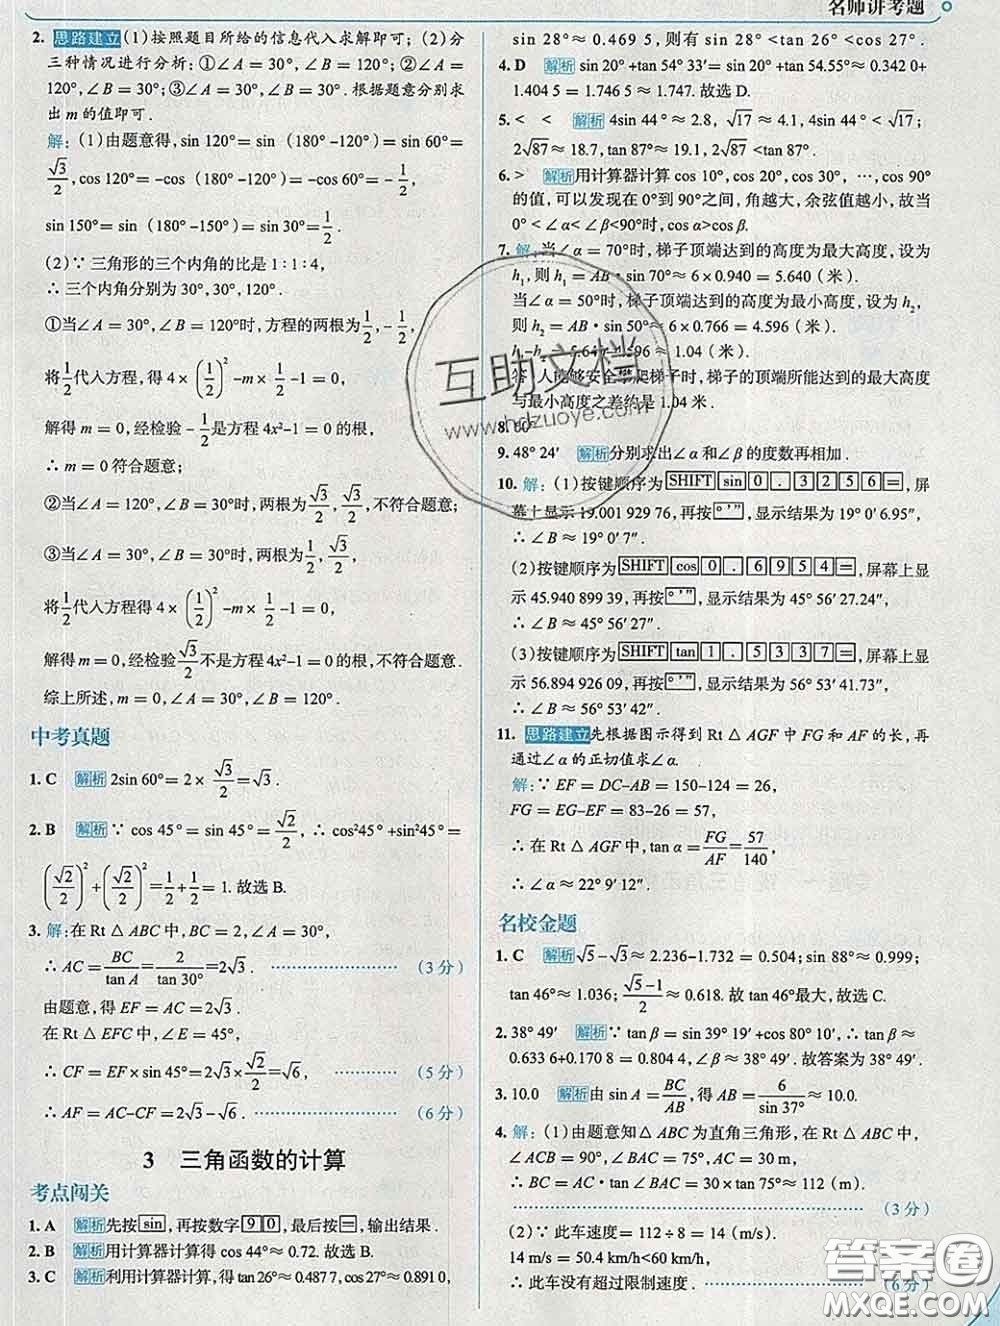 名师讲考题
2. 思路建立(1)按照题目所给的信息代入求解即可；(2)分
三种情况进行分析：①∠A = 30°，∠B = 120°；②∠A =
120°，∠B = 30°；③∠A = 30°，∠B = 30°. 根据题意分别求
出 m 的值即可.
解：(1)由题意得，sin 120°= sin (180°-120°)= sin 60°=
√3/2，cos 120°= -cos (180°-120°)= -cos 60°= -1/2，
sin 150°= sin (180°-150°)= sin 30°= 1/2.
(2)∵ 三角形的三个内角的比是 1∶1∶4，
∴ 三个内角分别为 30°，30°，120°.
①当∠A = 30°，∠B = 120°时，方程的两根为1/2，-1/2，
将1/2代入方程，得 4×(1/2)²-m×1/2-1=0，
解得 m = 0，经检验 -1/2是方程 4x²-1=0 的根，
∴ m = 0 符合题意；
②当∠A = 120°，∠B = 30°时，两根为√3/2，√3/2，不符合题意；
③当∠A = 30°，∠B = 30°时，两根为1/2，√3/2，
将1/2代入方程得 4×(1/2)²-m×1/2-1=0，
解得 m = 0，经检验√3/2不是方程 4x²-1=0 的根，不符合题意.
综上所述，m = 0，∠A = 30°，∠B = 120°.
中考真题
1. C 解析 2sin 60°= 2×√3/2=√3.
2. B 解析 ∵ cos 45°= sin 45°=√2/2，∴ cos²45°+sin²45°=
(√2/2)²+(√2/2)²=1/2+1/2=1. 故选 B.
3. 解：在 Rt △ ABC 中，BC = 2，∠A = 30°，
∴ AC = BC/tan A = 2/tan 30° = 2√3. (3 分)
由题意，得 EF = AC = 2√3.
在 Rt △ EFC 中，∠E = 45°，
∴ CF = EF×sin 45°= 2√3×√2/2=√6， (5 分)
∴ AF = AC-CF = 2√3-√6. (6 分)
3 三角函数的计算
考点闯关
1. A 解析 先按 sin，再按数字 9 0，最后按 =，输出结果.
2. B 解析 用计算器计算得 cos 44°≈ 0.72. 故选 B.
3. C 解析 利用计算器计算，得 tan 26°≈ 0.487 7，cos 27°≈ 0.891 0，
sin 28°≈ 0.469 5，所以有 sin 28° <tan 26° <cos 27°.
4. D 解析 sin 20°+tan 54° 33′= sin 20°+tan 54.55°≈ 0.342 0+
1.404 5 = 1.746 5 ≈ 1.747. 故选 D.
5. < < 解析 4sin 44°≈ 2.8，√17 ≈ 4.1，4sin 44° <√17；
2√87 ≈ 18.7，tan 87°≈ 19.1，2√87 <tan 87°.
6. > 解析 用计算器计算 cos 10°，cos 20°，cos 30°，…，cos 90°
的值，可以发现在 0°到 90°之间，角越大，余弦值越小，故当
0° <∠α <∠β<90°时，cos α>cos β.
7. 解：当∠α = 70°时，梯子顶端达到的高度为最大高度，设为
h₁，则 h₁ = AB·sin 70°≈ 6×0.940 = 5.640 (米).
当∠α = 50°时，梯子顶端达到的高度为最小高度，设为 h₂，
则 h₂ = AB·sin 50°≈ 6×0.766 = 4.596 (米).
h₁-h₂ ≈ 1.04 (米).
答：人能够安全攀爬梯子时，梯子的顶端所能达到的最大高度
与最小高度之差约是 1.04 米.
8. 60°
9. 48° 24′ 解析 分别求出∠α 和∠β 的度数再相加.
10. 解：(1)按键顺序为 SHIFT sin 0 . 3 2 5 6 =，屏
幕上显示 19.001 929 76，再按 ° ′ ″，显示结果为 19° 0′ 6.95″，
∴ ∠B ≈ 19° 0′ 7″.
(2)按键顺序为 SHIFT cos 0 . 6 9 5 4 =，屏幕上显
示 45.940 899 39，再按 ° ′ ″，显示结果为 45° 56′ 27.24″，
∴ ∠B ≈ 45° 56′ 27″.
(3)按键顺序为 SHIFT tan 1 . 5 3 3 7 =，屏幕上显示
56.894 926 09，再按 ° ′ ″，显示结果为 56° 53′ 41.73″，
∴ ∠B ≈ 56° 53′ 42″.
11. 思路建立 先根据图示得到 Rt △ AGF 中 FG 和 AF 的长，再
通过∠α 的正切值求∠α.
解：∵ EF = DC-AB = 150-124 = 26，
FG = EG-EF = 83-26 = 57，
∴ 在 Rt △ AGF 中，tan α = FG/AF = 57/140，
∴ ∠α ≈ 22° 9′ 12″.
名校金题
1. C 解析 √5-√3 ≈ 2.236-1.732 = 0.504；sin 88°≈ 0.999；
tan 46°≈ 1.036；(√5-1)/2 ≈ 0.618. 故 tan 46°最大，故选 C.
2. 38° 49′ 解析 ∵ tan β = sin 39° 19′+cos 80° 10′，∴ tan β ≈
0.633 6+0.170 8 = 0.804 4，∠β ≈ 38° 49′. 故答案为 38° 49′.
3. 10.0 解析 由 sin A = BC/AB，得 AB = 6/sin 37° ≈ 10.0.
4. 解：(1)由题意知△ ABC 为直角三角形，在 Rt △ ABC 中，
∠ACB = 90°，∠BAC = 75°，AC = 30 m，
∴ BC = AC·tan∠BAC = 30×tan 75°≈ 112(m).
(3 分)
(2)∵ 此车速度 = 112÷8 = 14 (m/s).
14 m/s = 50.4 km/h<60 km/h，
∴ 此车没有超过限制速度. (6 分)
互助文档
www.hdzuoye.com
答案圈
MXQE.COM